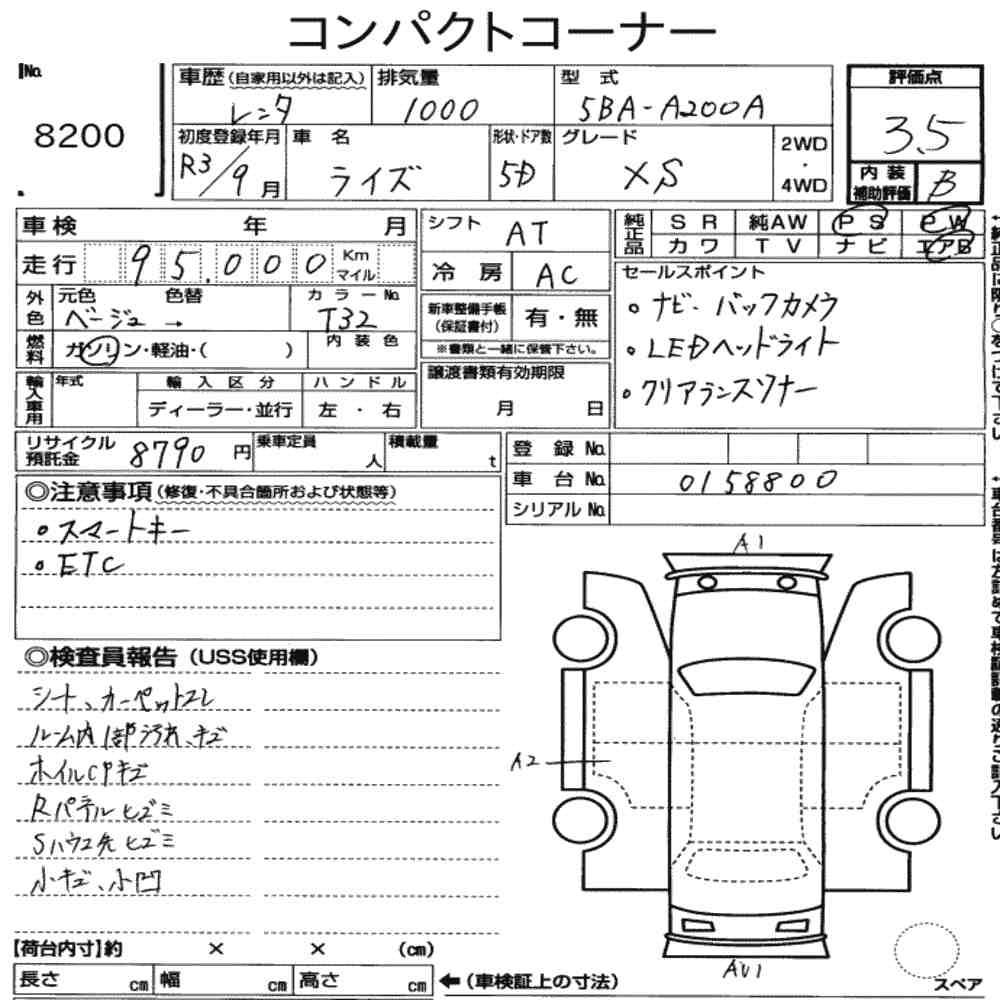 コンパクトコーナー
No.
8200
車歴(自家用以外は記入) 排気量 型式 評価点
レンタ 1000 5BA-A200A 3.5
初度登録年月 車名 形状・ドア数 グレード 2WD・4WD
R3/9月 ライズ 5D XS
内装補助評価 B
車検 年 月
走行 95,000 Km マイル
外色 元色 色替 カラーNo.
ベージュ → T32
燃料 ガソリン・軽油・( ) 内装色
輸入車用 年式 輸入区分 ハンドル
ディーラー・並行 左・右
シフト AT
冷房 AC
新車整備手帳(保証書付) 有・無
※書類と一緒に保管下さい。
譲渡書類有効期限
月 日
純正品 SR 純AW PS PW
カワ TV ナビ エアB
セールスポイント
・ナビ・バックカメラ
・LEDヘッドライト
・クリアランスソナー
リサイクル預託金 8790円 乗車定員 人 積載量 t
登録No.
車台No. 0158800
シリアルNo.
◎注意事項(修復・不具合箇所および状態等)
・スマートキー
・ETC
◎検査員報告(USS使用欄)
シート、カーペットコレ
ルーム内1部汚れ、キズ
ホイルCPキズ
Rパネルヒズミ
Sハウス先ヒズミ
小キズ、小凹
A1
A2
AU1
スペア
【荷台内寸】約 × × (cm)
長さ cm 幅 cm 高さ cm ←(車検証上の寸法)